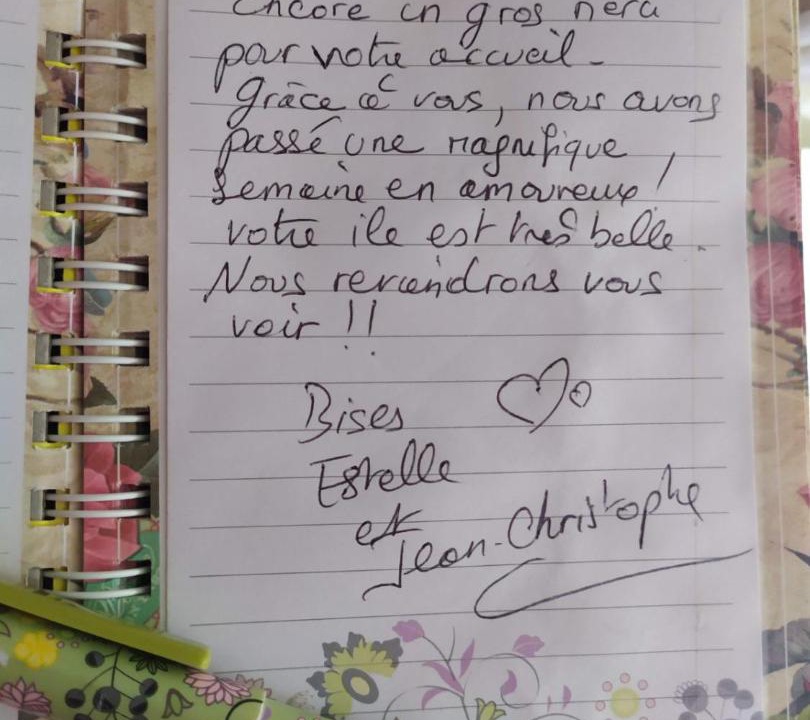 Encore un gros merci
pour votre accueil -
Grâce à vous, nous avons
passé une magnifique
semaine en amoureux !
votre ile est très belle.
Nous reviendrons vous
voir !!
Bises
Estelle
et
Jean-Christophe